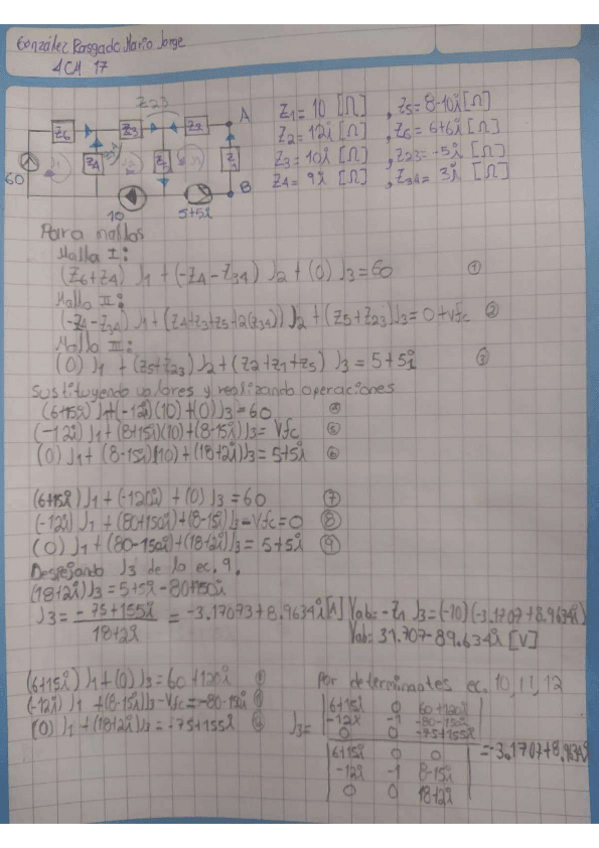 González Rasgado Mario Jorge
4CM 17
Z23
Z6
Z3
Z2
A
Z4
Z5
Z1
J1
J2
J3
60
10
5+5i
B
Z1= 10 [Ω] , Z5= 8-10i[Ω]
Z2= 12i [Ω] , Z6= 6+6i[Ω]
Z3= 10i [Ω] , Z23= -5i [Ω]
Z4= 9i [Ω] , Z34= 3i [Ω]
Para mallas
Malla I:
(Z6+Z4) J1 + (-Z4-Z34) J2 + (0) J3 = 60 ①
Malla II:
(-Z4-Z34) J1 + (Z4+Z3+Z5+2(Z34)) J2 + (Z5+Z23)J3 = 0+Vfc ②
Malla III:
(0) J1 + (Z5+Z23) J2 + (Z2+Z1+Z5) J3 = 5+5i ③
Sustituyendo valores y realizando operaciones
(6+15i) J1+(-12i)(10)+(0)J3=60 ④
(-12i) J1+(8+15i)(10)+(8-15i)J3= Vfc ⑤
(0) J1+ (8-15i)(10)+(18+2i)J3=5+5i ⑥
(6+15i) J1 + (-120i) + (0) J3 = 60 ⑦
(-12i) J1 + (80+150i)+(8-15i)J3-Vfc=0 ⑧
(0) J1+(80-150i)+(18+2i)J3= 5+5i ⑨
Despejando J3 de la ec. 9.
(18+2i)J3=5+5i-80+150i
J3= -75+155i = -3.17073+8.9634i[A] Vab=-Z1 J3=(-10)(-3.1707+8.9634i)
18+2i Vab= 31.707-89.634i [V]
(6+15i) J1+(0) J3 = 60+120i
(-12i) J1 +(8-15i)J3-Vfc=-80-150i
(0) J1 +(18+2i)J3=-75+155i
Por determinantes ec. 10,11,12
6+15i 0 60+120i
-12i -1 -80-150i
J3= 0 0 -75+155i =-3.1707+8.9634i
6+15i 0 0
-12i -1 8-15i
0 0 18+2i